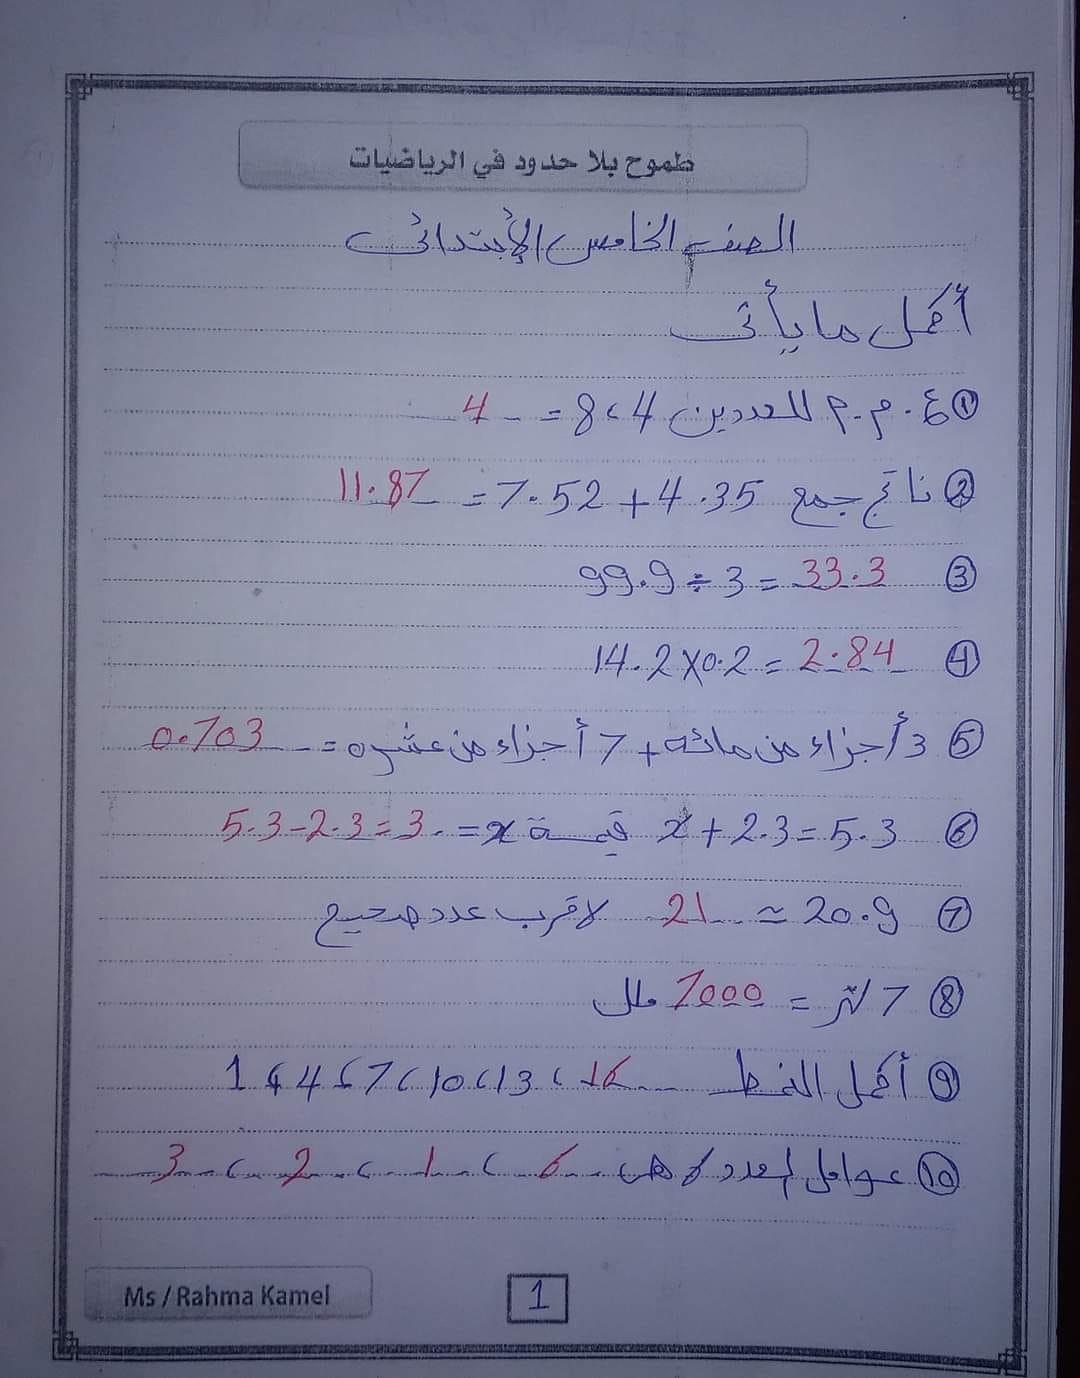 طموح بلا حدود في الرياضيات
الصف الخامس الابتدائى
أكمل ما يأتى
① ع.م.م للعددين 4، 8 = 4
② ناتج جمع 4.35 + 7.52 = 11.87
③ 99.9 ÷ 3 = 33.3
④ 14.2 × 0.2 = 2.84
⑤ 3 أجزاء من مائة + 7 أجزاء من عشره = 0.703
⑥ x + 2.3 = 5.3 قيمة x = 5.3 - 2.3 = 3
⑦ 20.9 ≈ 21 لاقرب عدد صحيح
⑧ 7 لتر = 7000 ملل
⑨ أكمل النمط 1، 4، 7، 10، 13، 16
⑩ عوامل العدد 6 هى 6، 1، 2، 3
Ms / Rahma Kamel
1